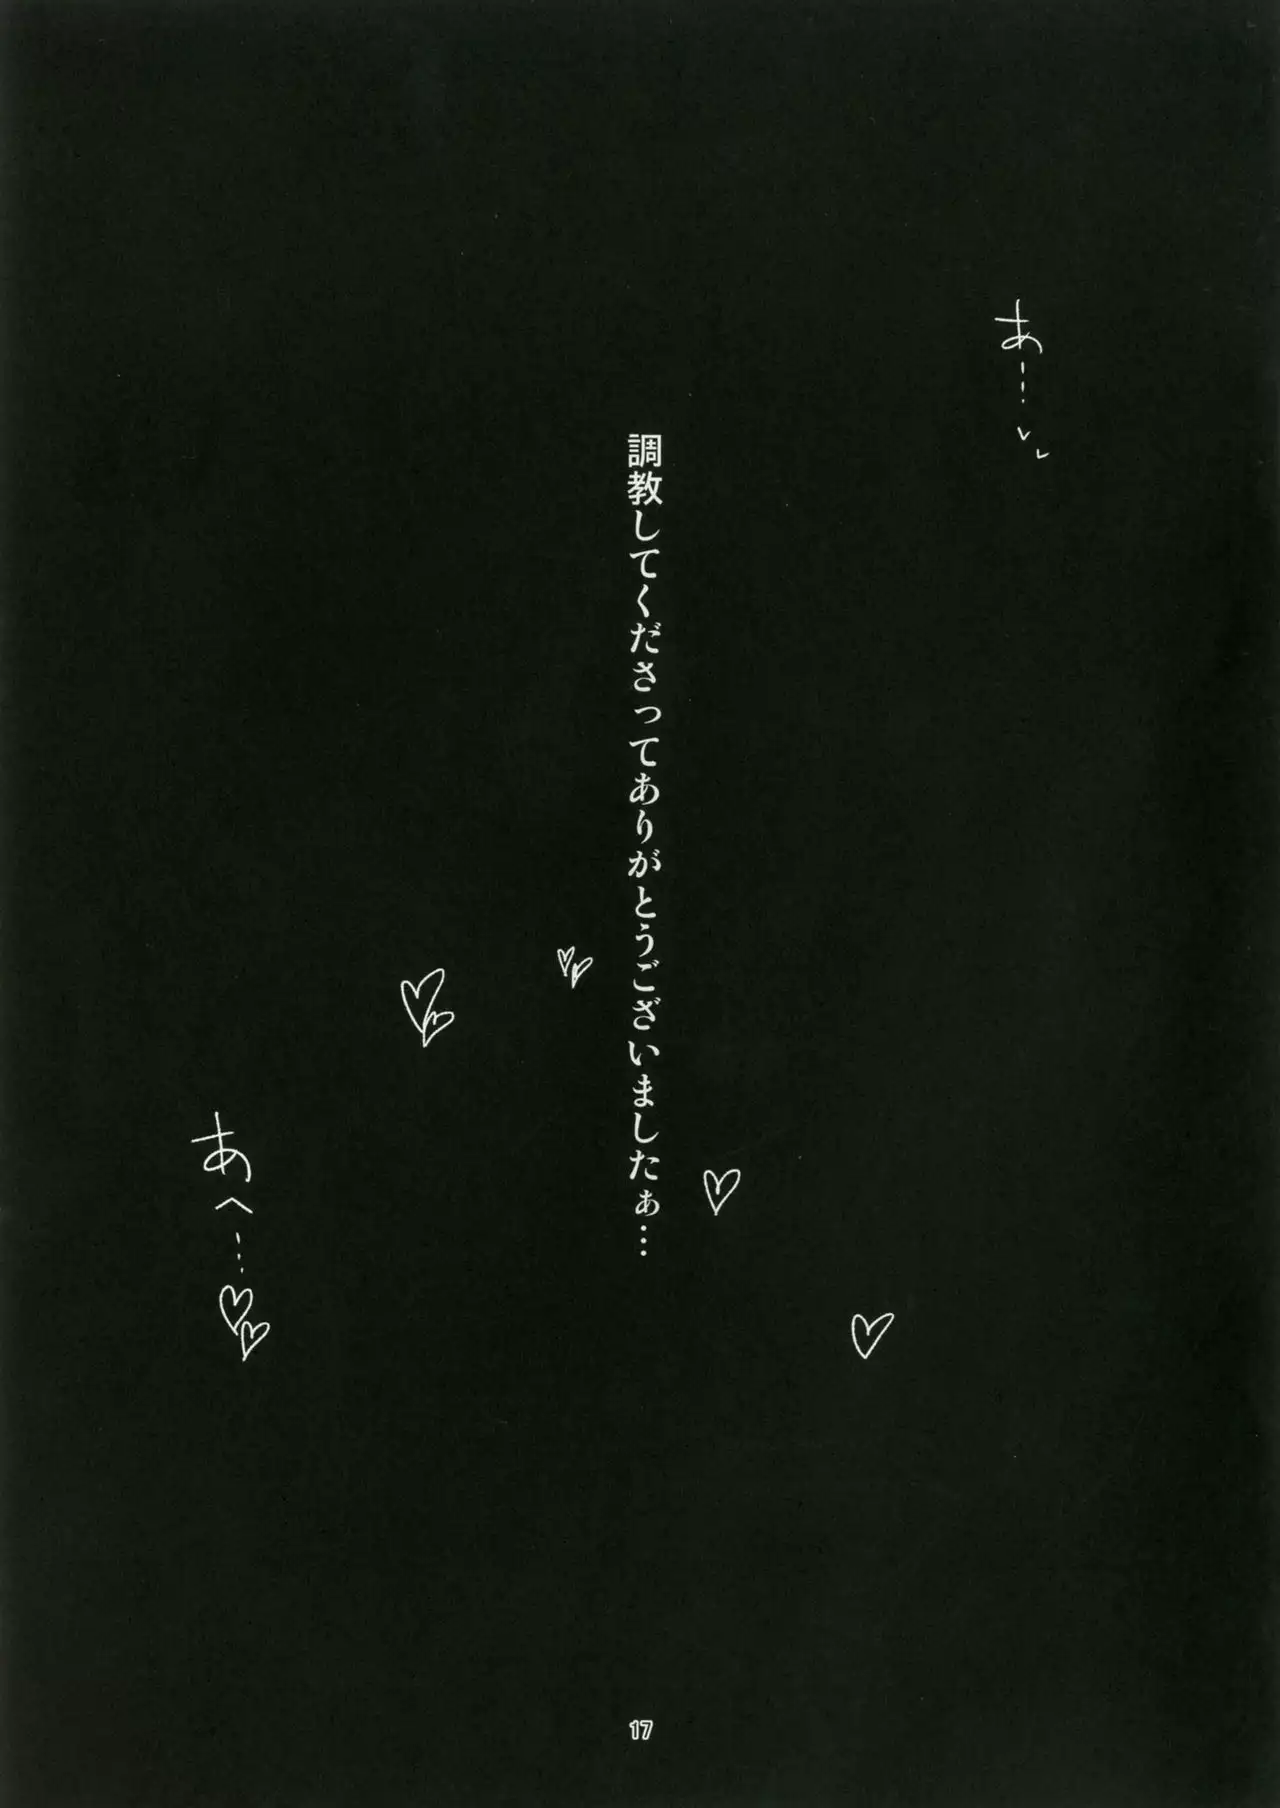 あ…
調教してくださってありがとうございましたぁ…
あへ…♡♡
17